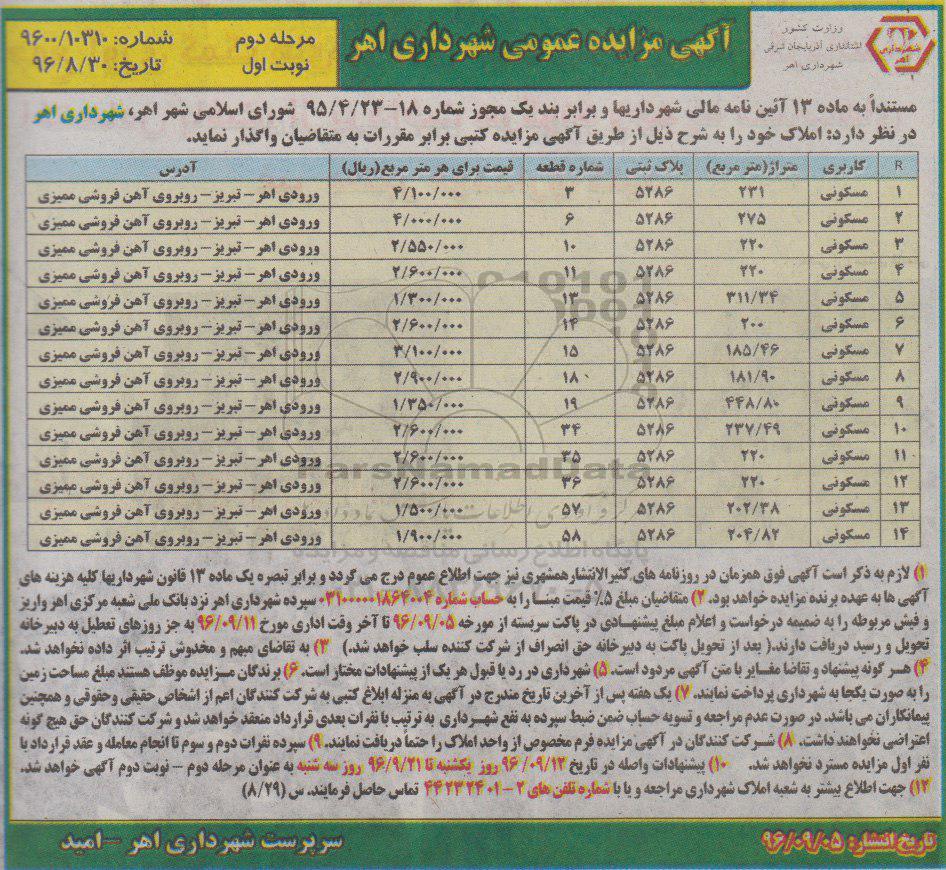 وزارت کشور
استانداری آذربایجان شرقی
شهرداری اهر
آگهی مزایده عمومی شهرداری اهر
مرحله دوم
نوبت اول
شماره: ۹۶۰۰/۱۰۳۱۰
تاریخ: ۹۶/۸/۳۰
مستنداً به ماده ۱۳ آئین نامه مالی شهرداریها و برابر بند یک مجوز شماره ۱۸-۹۵/۴/۲۳ شورای اسلامی شهر اهر، شهرداری اهر
در نظر دارد: املاک خود را به شرح ذیل از طریق آگهی مزایده کتبی برابر مقررات به متقاضیان واگذار نماید.
R کاربری متراژ(متر مربع) پلاک ثبتی شماره قطعه قیمت برای هر متر مربع(ریال) آدرس
۱ مسکونی ۲۳۱ ۵۲۸۶ ۳ ۴/۱۰۰/۰۰۰ ورودی اهر– تبریز– روبروی آهن فروشی ممیزی
۲ مسکونی ۲۷۵ ۵۲۸۶ ۶ ۴/۰۰۰/۰۰۰ ورودی اهر– تبریز– روبروی آهن فروشی ممیزی
۳ مسکونی ۲۲۰ ۵۲۸۶ ۱۰ ۲/۵۵۰/۰۰۰ ورودی اهر– تبریز– روبروی آهن فروشی ممیزی
۴ مسکونی ۲۲۰ ۵۲۸۶ ۱۱ ۲/۶۰۰/۰۰۰ ورودی اهر– تبریز– روبروی آهن فروشی ممیزی
۵ مسکونی ۳۱۱/۳۴ ۵۲۸۶ ۱۳ ۱/۳۰۰/۰۰۰ ورودی اهر– تبریز– روبروی آهن فروشی ممیزی
۶ مسکونی ۲۰۰ ۵۲۸۶ ۱۴ ۲/۶۰۰/۰۰۰ ورودی اهر– تبریز– روبروی آهن فروشی ممیزی
۷ مسکونی ۱۸۵/۴۶ ۵۲۸۶ ۱۵ ۳/۱۰۰/۰۰۰ ورودی اهر– تبریز– روبروی آهن فروشی ممیزی
۸ مسکونی ۱۸۱/۹۰ ۵۲۸۶ ۱۸ ۲/۹۰۰/۰۰۰ ورودی اهر– تبریز– روبروی آهن فروشی ممیزی
۹ مسکونی ۴۴۸/۸۰ ۵۲۸۶ ۱۹ ۱/۳۵۰/۰۰۰ ورودی اهر– تبریز– روبروی آهن فروشی ممیزی
۱۰ مسکونی ۲۳۷/۴۹ ۵۲۸۶ ۳۴ ۲/۶۰۰/۰۰۰ ورودی اهر– تبریز– روبروی آهن فروشی ممیزی
۱۱ مسکونی ۲۲۰ ۵۲۸۶ ۳۵ ۲/۶۰۰/۰۰۰ ورودی اهر– تبریز– روبروی آهن فروشی ممیزی
۱۲ مسکونی ۲۲۰ ۵۲۸۶ ۳۶ ۲/۶۰۰/۰۰۰ ورودی اهر– تبریز– روبروی آهن فروشی ممیزی
۱۳ مسکونی ۲۰۲/۳۸ ۵۲۸۶ ۵۷ ۱/۵۰۰/۰۰۰ ورودی اهر– تبریز– روبروی آهن فروشی ممیزی
۱۴ مسکونی ۲۰۴/۸۲ ۵۲۸۶ ۵۸ ۱/۹۰۰/۰۰۰ ورودی اهر– تبریز– روبروی آهن فروشی ممیزی
ParsNamadData
۱) لازم به ذکر است آگهی فوق همزمان در روزنامه های کثیرالانتشار همشهری نیز جهت اطلاع عموم درج می گردد و برابر تبصره یک ماده ۱۳ قانون شهرداریها کلیه هزینه های
آگهی ها به عهده برنده مزایده خواهد بود. ۲) متقاضیان مبلغ ۵٪ قیمت مبنا را به حساب شماره ۰۳۱۰۰۰۰۰۱۸۶۴۰۰۴ سپرده شهرداری اهر نزد بانک ملی شعبه مرکزی اهر واریز
و فیش مربوطه را به ضمیمه درخواست و اعلام مبلغ پیشنهادی در پاکت سربسته از مورخه ۹۶/۰۹/۰۵ تا آخر وقت اداری مورخ ۹۶/۰۹/۱۱ به جز روزهای تعطیل به دبیرخانه
تحویل و رسید دریافت دارند.( بعد از تحویل پاکت به دبیرخانه حق انصراف از شرکت کننده سلب خواهد شد.) ۳) به تقاضای مبهم و مخدوش ترتیب اثر داده نخواهد شد.
۴) هر گونه پیشنهاد و تقاضا مغایر با متن آگهی مردود است. ۵) شهرداری در رد یا قبول هر یک از پیشنهادات مختار است. ۶) برندگان مزایده موظف هستند مبلغ مساحت زمین
را به صورت یکجا به شهرداری پرداخت نمایند. ۷) یک هفته پس از آخرین تاریخ مندرج در آگهی به منزله ابلاغ کتبی به شرکت کنندگان اعم از اشخاص حقیقی وحقوقی و همچنین
پیمانکاران می باشد. در صورت عدم مراجعه و تسویه حساب ضمن ضبط سپرده به نفع شهرداری به ترتیب با نفرات بعدی قرارداد منعقد خواهد شد و شرکت کنندگان حق هیچ گونه
اعتراضی نخواهند داشت. ۸) شرکت کنندگان در آگهی مزایده فرم مخصوص از واحد املاک را حتماً دریافت نمایند. ۹) سپرده نفرات دوم و سوم تا انجام معامله و عقد قرارداد با
نفر اول مزایده مسترد نخواهد شد. ۱۰) پیشنهادات واصله در تاریخ ۹۶/۰۹/۱۲ روز یکشنبه تا ۹۶/۹/۲۱ روز سه شنبه به عنوان مرحله دوم – نوبت دوم آگهی خواهد شد.
۱۲) جهت اطلاع بیشتر به شعبه املاک شهرداری مراجعه و یا با شماره تلفن های ۲-۴۴۲۳۲۴۰۱ تماس حاصل فرمایند. س (۸/۲۹)
تاریخ انتشار: ۹۶/۰۹/۰۵
سرپرست شهرداری اهر –امید